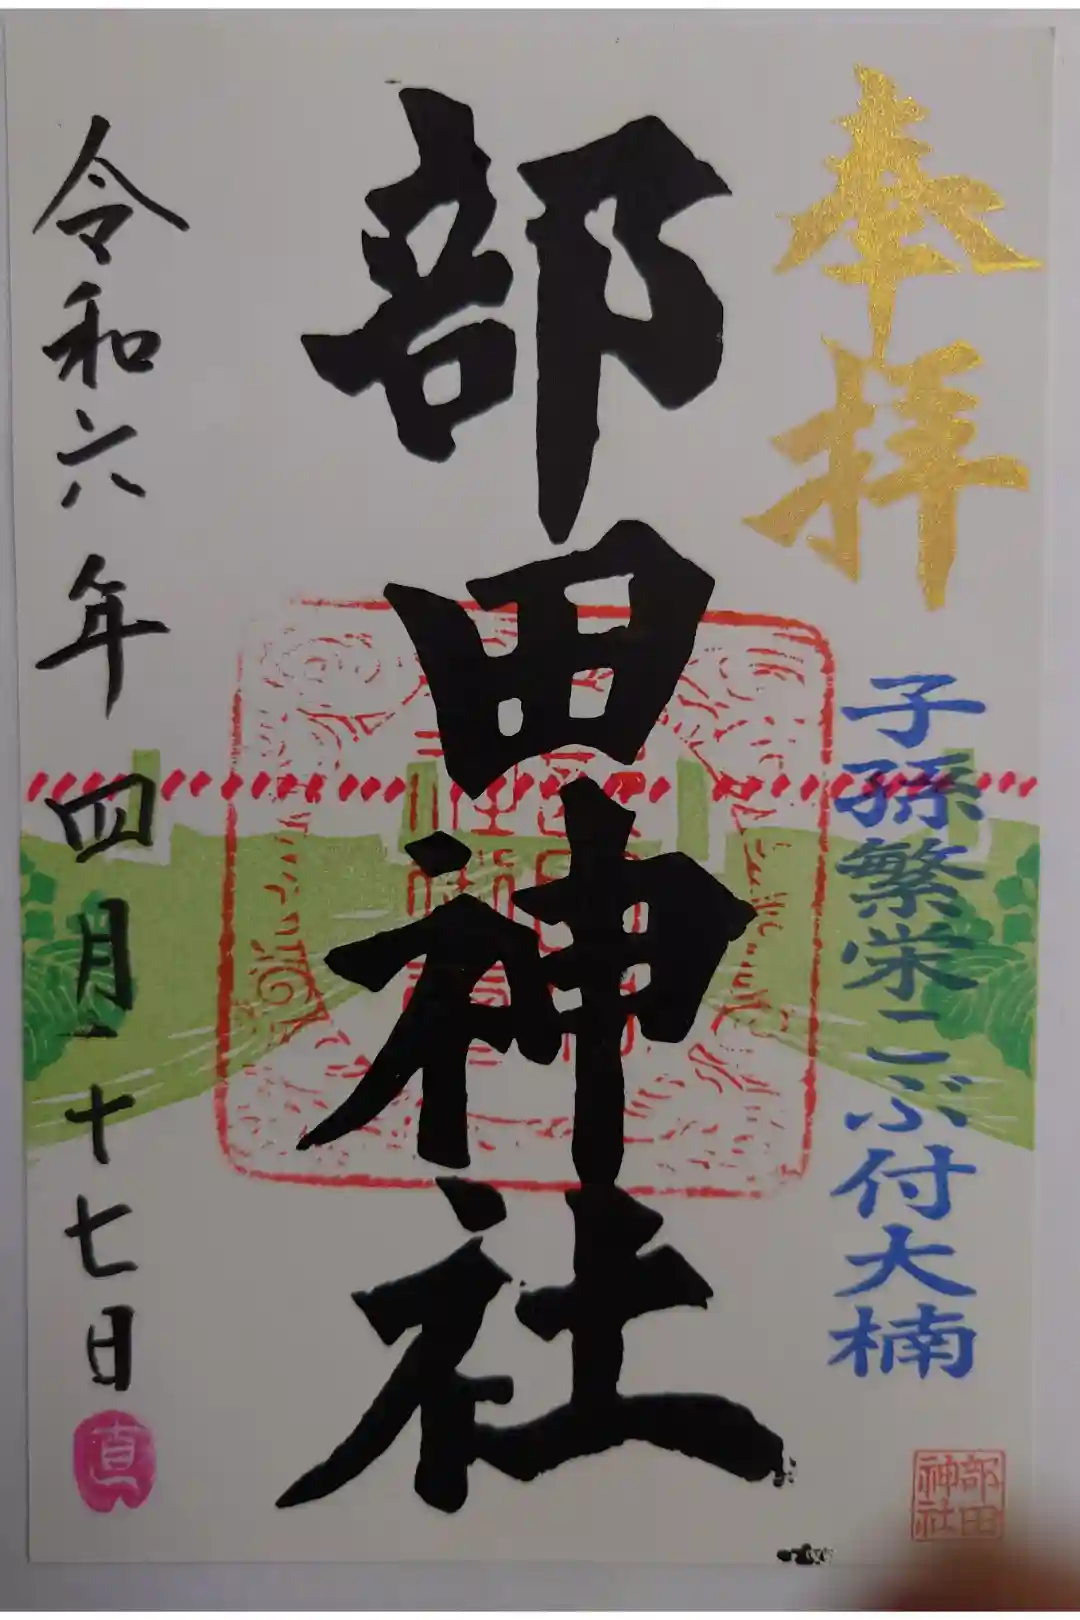 奉拝
子孫繁栄こぶ付大楠
部田神社
部田神社
令和六年四月十七日
真